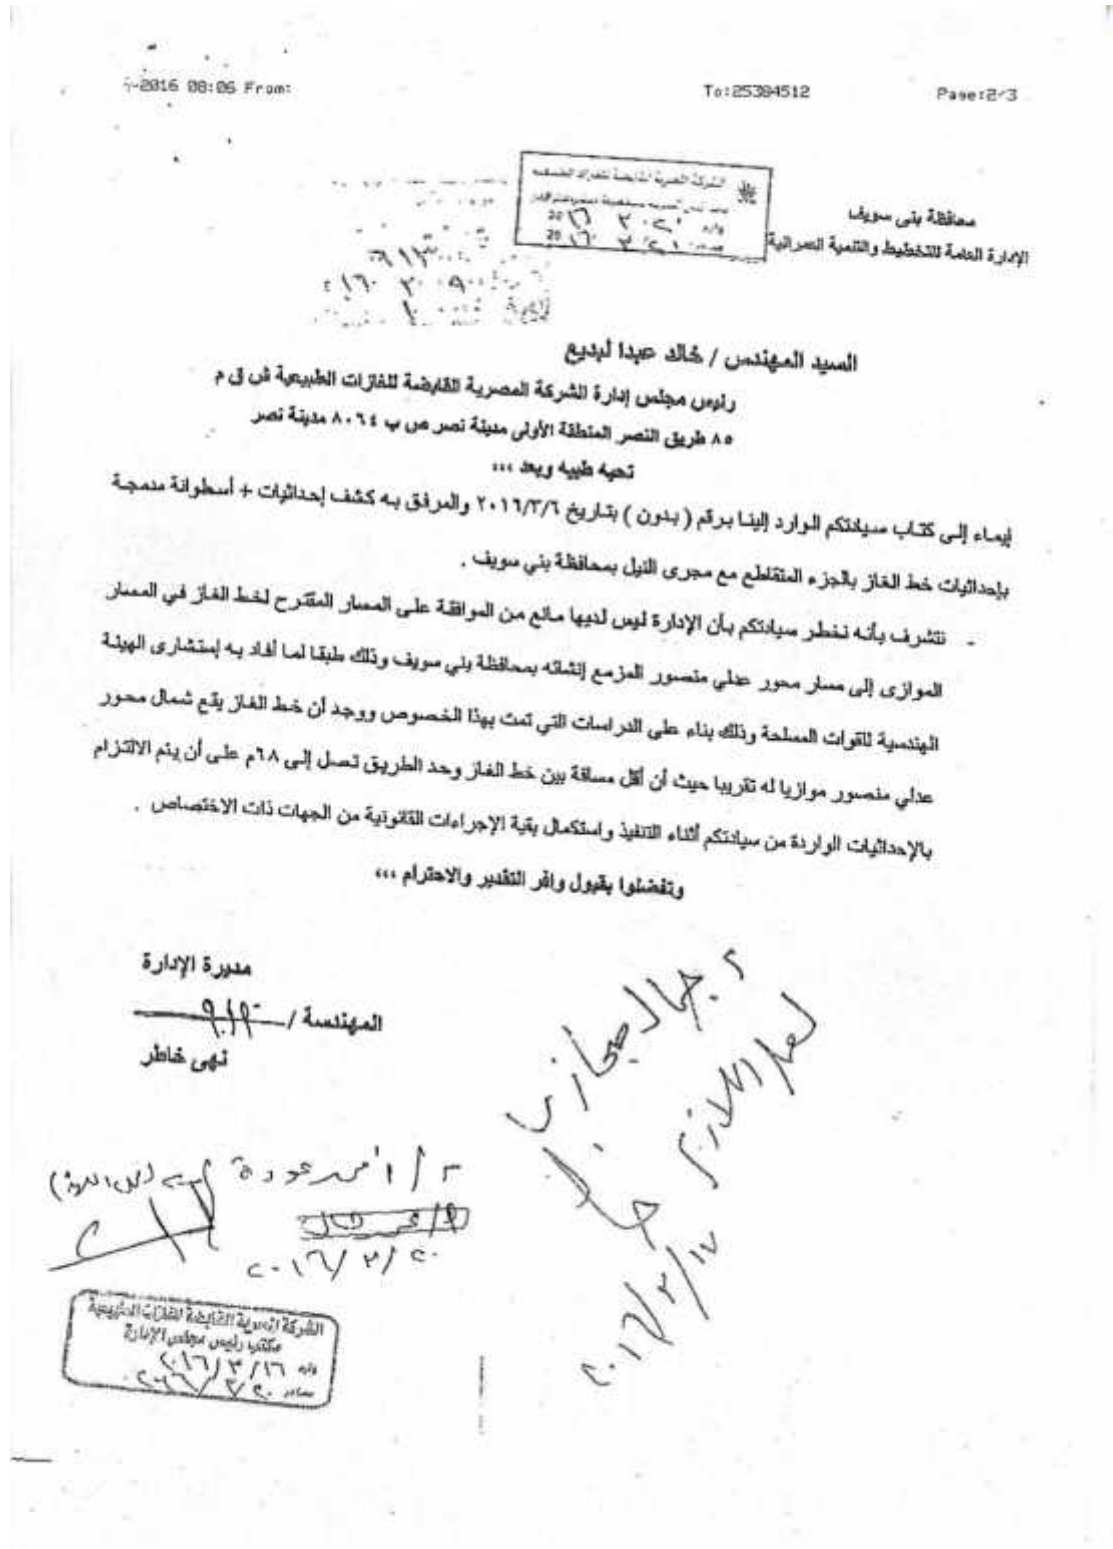 -2016 08:06 From:
To:25384512
Page:2/3
الشركة المصرية القابضة للغازات الطبيعية
محافظة بنى سويف
الإدارة العامة للتخطيط والتنمية العمرانية
السيد المهندس / خالد عبدا لبديع
رئيس مجلس إدارة الشركة المصرية القابضة للغازات الطبيعية ش ق م
٨٥ طريق النصر المنطقة الأولى مدينة نصر ص ب ٨٠٦٤ مدينة نصر
تحيه طيبه وبعد ،،،
إيماء إلى كتاب سيادتكم الوارد إلينا برقم ( بدون ) بتاريخ ٢٠١٦/٣/٦ والمرفق به كشف إحداثيات + أسطوانة مدمجة
بإحداثيات خط الغاز بالجزء المتقاطع مع مجرى النيل بمحافظة بني سويف .
- نتشرف بأنه نخطر سيادتكم بأن الإدارة ليس لديها مانع من الموافقة على المسار المقترح لخط الغاز في المسار
الموازى إلى مسار محور عدلي منصور المزمع إنشائه بمحافظة بني سويف وذلك طبقا لما أفاد به إستشارى الهيئة
الهندسية للقوات المسلحة وذلك بناء على الدراسات التي تمت بهذا الخصوص ووجد أن خط الغاز يقع شمال محور
عدلي منصور موازيا له تقريبا حيث أن أقل مسافة بين خط الغاز وحد الطريق تصل إلى ٦٨م على أن يتم الالتزام
بالإحداثيات الواردة من سيادتكم أثناء التنفيذ واستكمال بقية الإجراءات القانونية من الجهات ذات الاختصاص .
وتفضلوا بقبول وافر التقدير والاحترام ،،،
مديرة الإدارة
المهندسة /
نهى خاطر
لعمل اللازم
٢٠١٦/٣/١٧
٢٠١٦/٣/٢٠
الشركة المصرية القابضة للغازات الطبيعية
مكتب رئيس مجلس الإدارة
وارد ٢٠١٦/٣/١٦
صادر ٢٠١٦/٣/٢٠